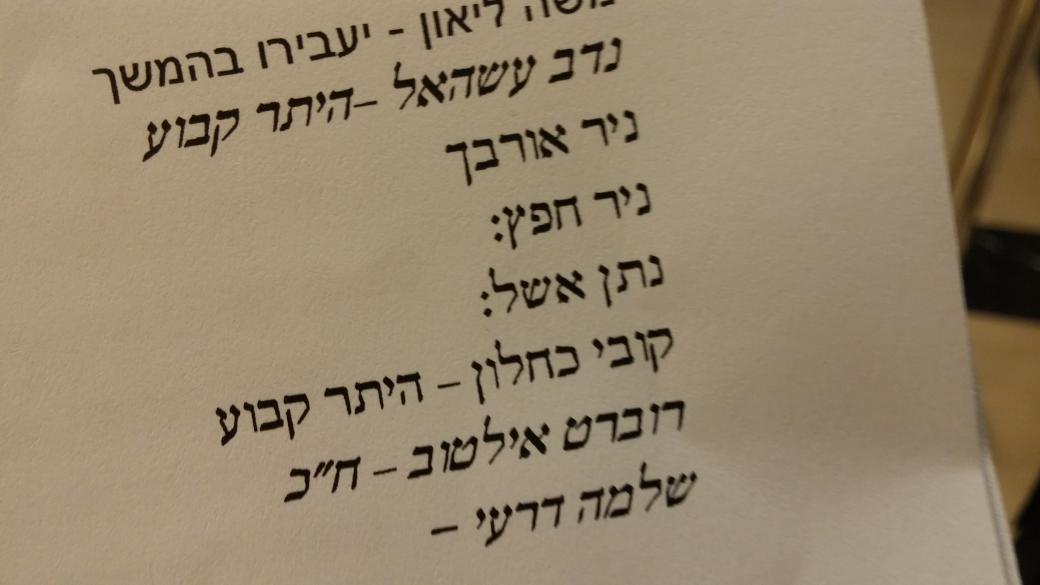 משה ליאון - יעבירו בהמשך
נדב עשהאל –היתר קבוע
ניר אורבך
ניר חפץ:
נתן אשל:
קובי כחלון – היתר קבוע
רוברט אילטוב – ח״כ
שלמה דרעי –